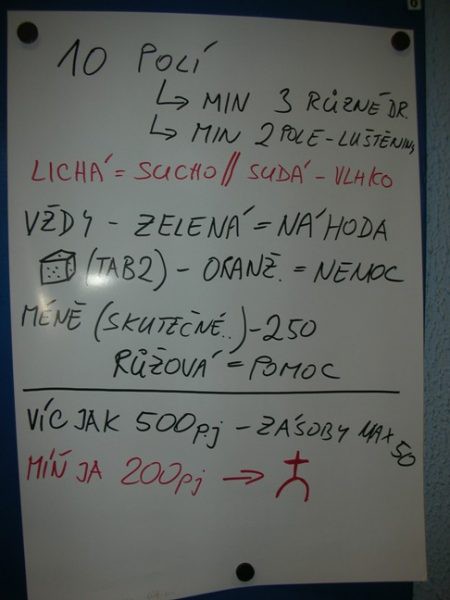 10 POLÍ
↳ MIN 3 RŮZNÉ DR.
↳ MIN 2 POLE - LUŠTĚNIN
LICHÁ = SUCHO // SUDÁ - VLHKO
VŽDY - ZELENÁ = NÁHODA
(TAB2) - ORANŽ. = NEMOC
MÉNĚ (SKUTEČNĚ..) - 250
RŮŽOVÁ = POMOC
VÍC JAK 500pj - ZÁSOBY MAX 50
MÍŇ JA 200pj →